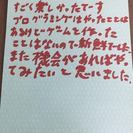 すごく楽しかったです
プログラミングはやったことは
あるけどゲームを作った
ことはなので新鮮でした。
また機会があればや
てみたいと思いました。